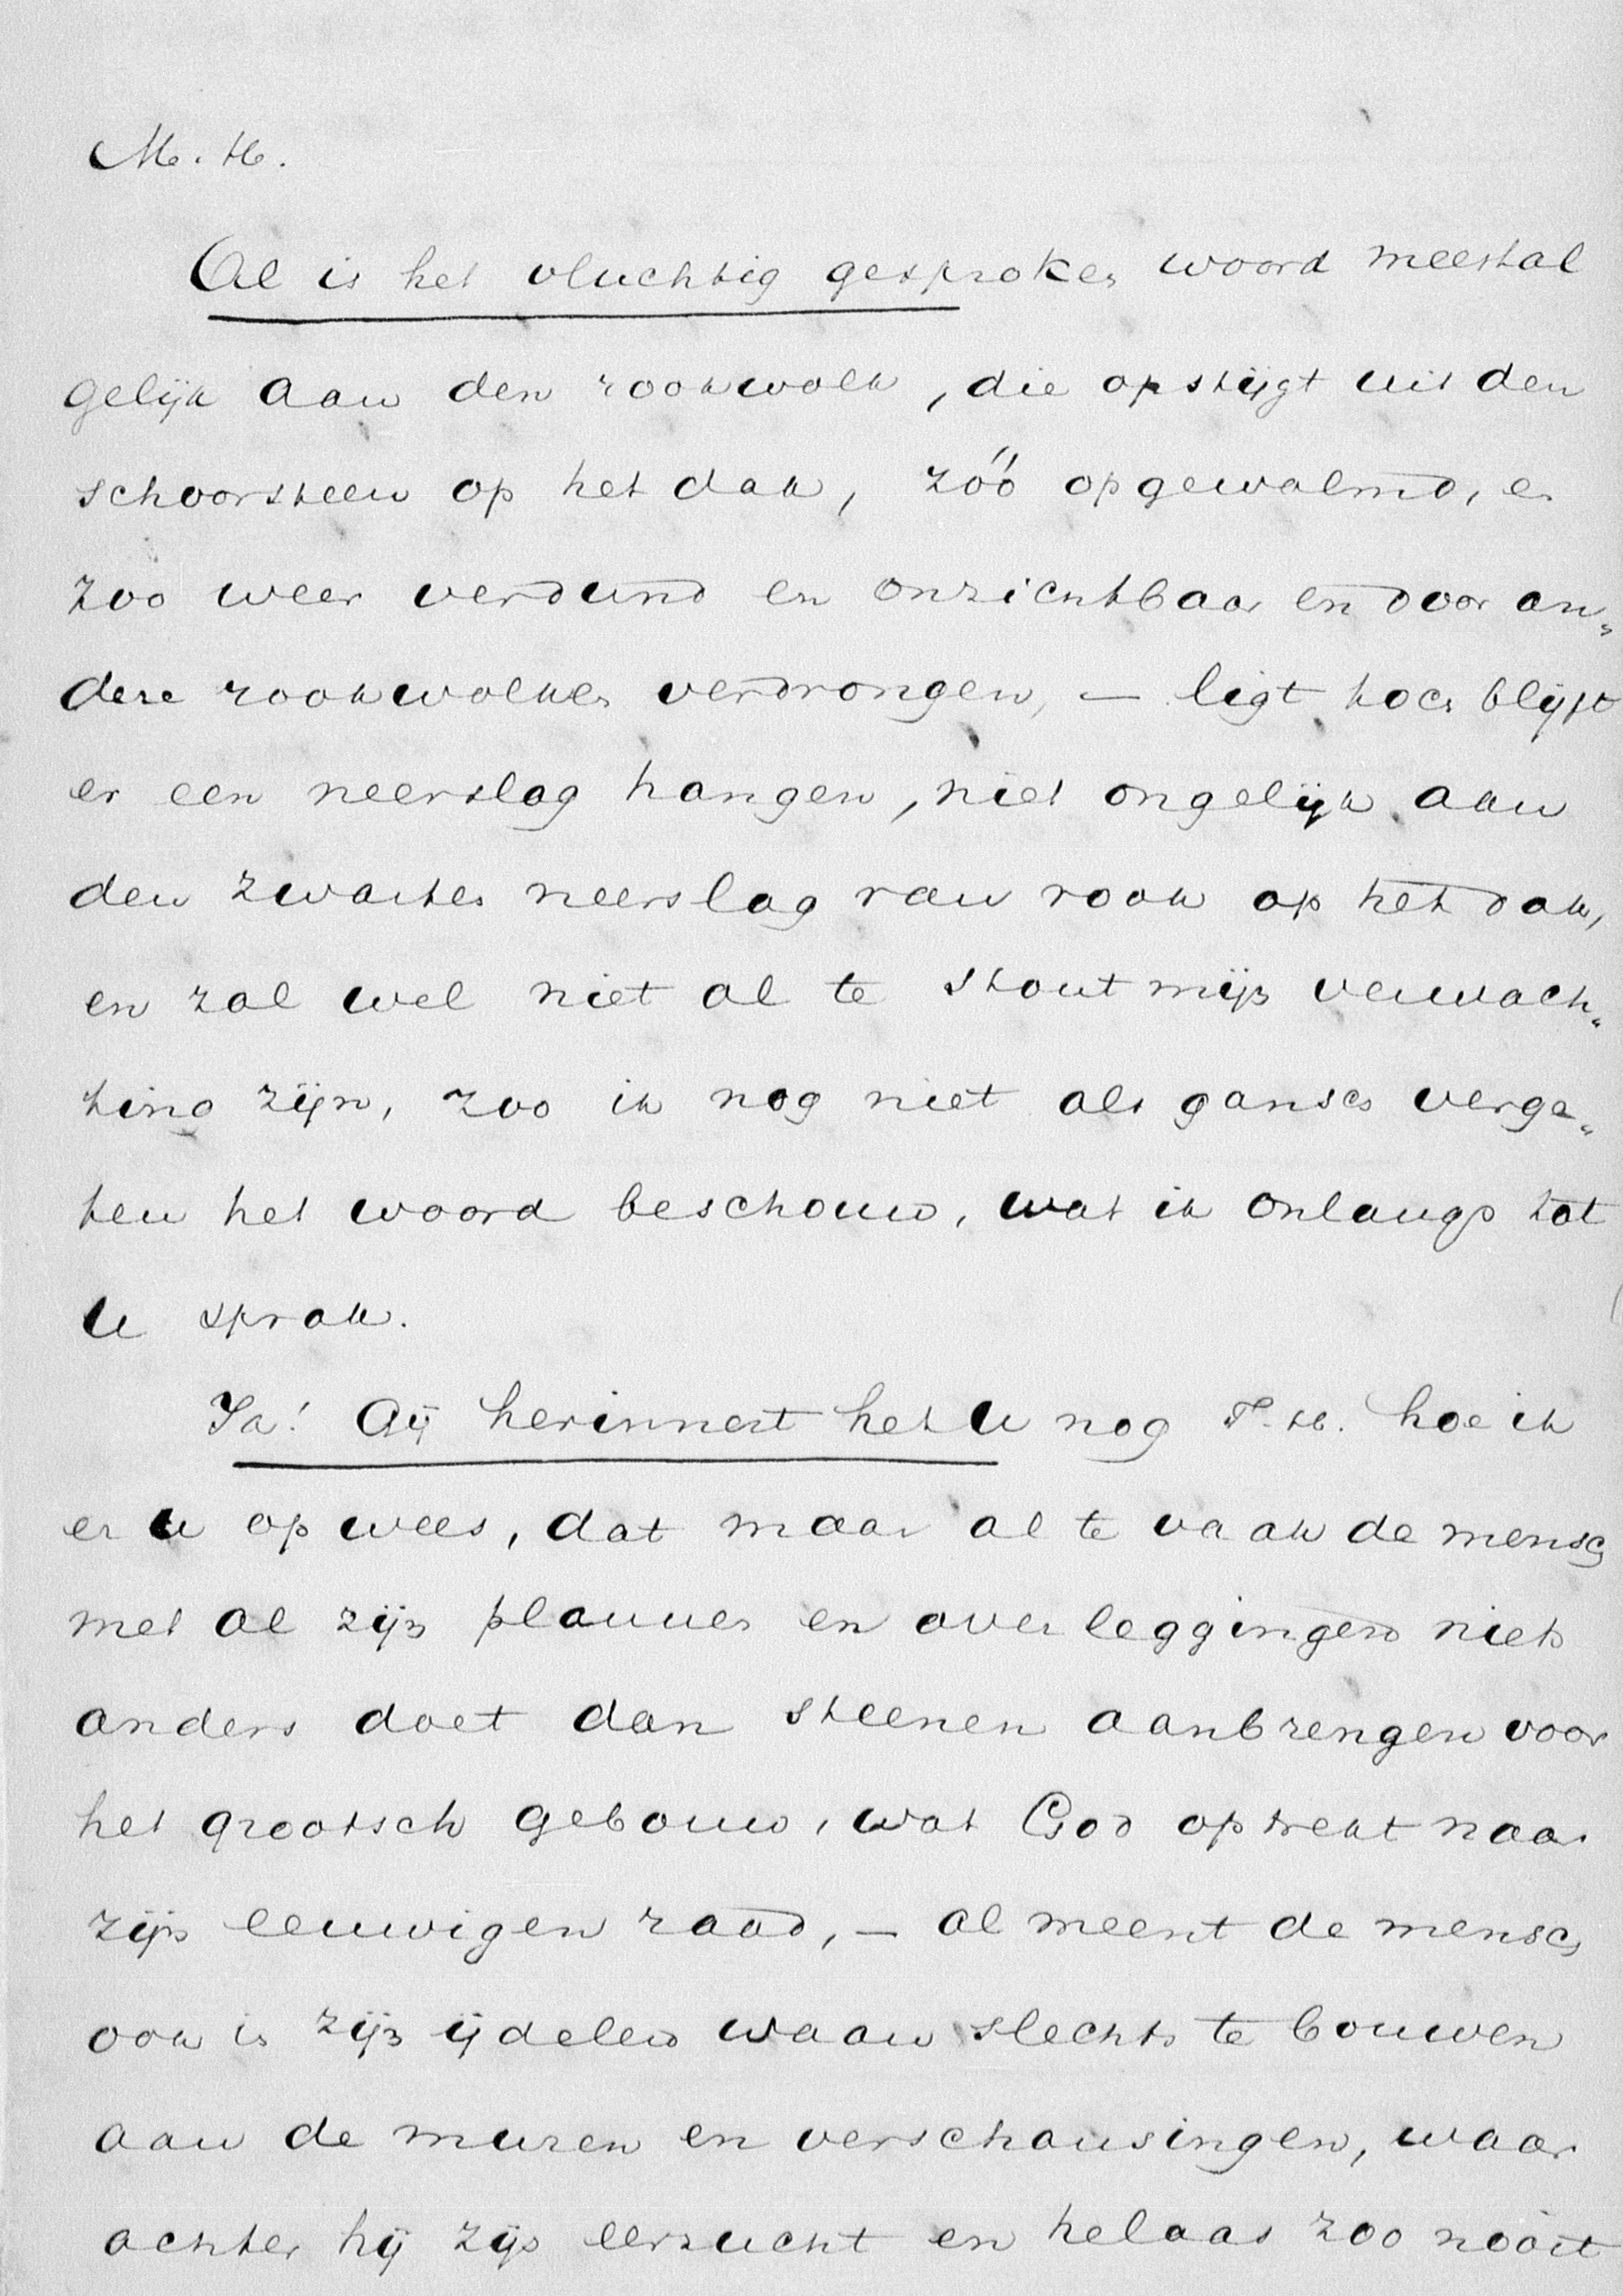 M. H.
Al is het vluchtig gesproken woord meestal
gelijk aan den rookwolk, die opstijgt uit den
schoorsteen op het dak, zóó opgewalmd, en
zoo weer verdund en onzichtbaar en door an„
dere rookwolken verdrongen, — ligt toch blijft
er een neerslag hangen, niet ongelijk aan
den zwarten neerslag van rook op het dak,
en zal wel niet al te stout mijn verwach„
ting zijn, zoo ik nog niet als gansch verge„
ten het woord beschouw, wat ik onlangs tot
U sprak.
Ja! Gij herinnert het U nog T. H. hoe ik
er U op wees, dat maar al te vaak de mensch
met al zijn plannen en overleggingen niets
anders doet dan steenen aanbrengen voor
het grootsch gebouw, wat God optrekt naar
zijn eeuwigen raad, — al meent de mensch
ook in zijn ijdelen waan slechts te bouwen
aan de muren en verschansingen, waar
achter hij zijn eerzucht en helaas zoo nooit